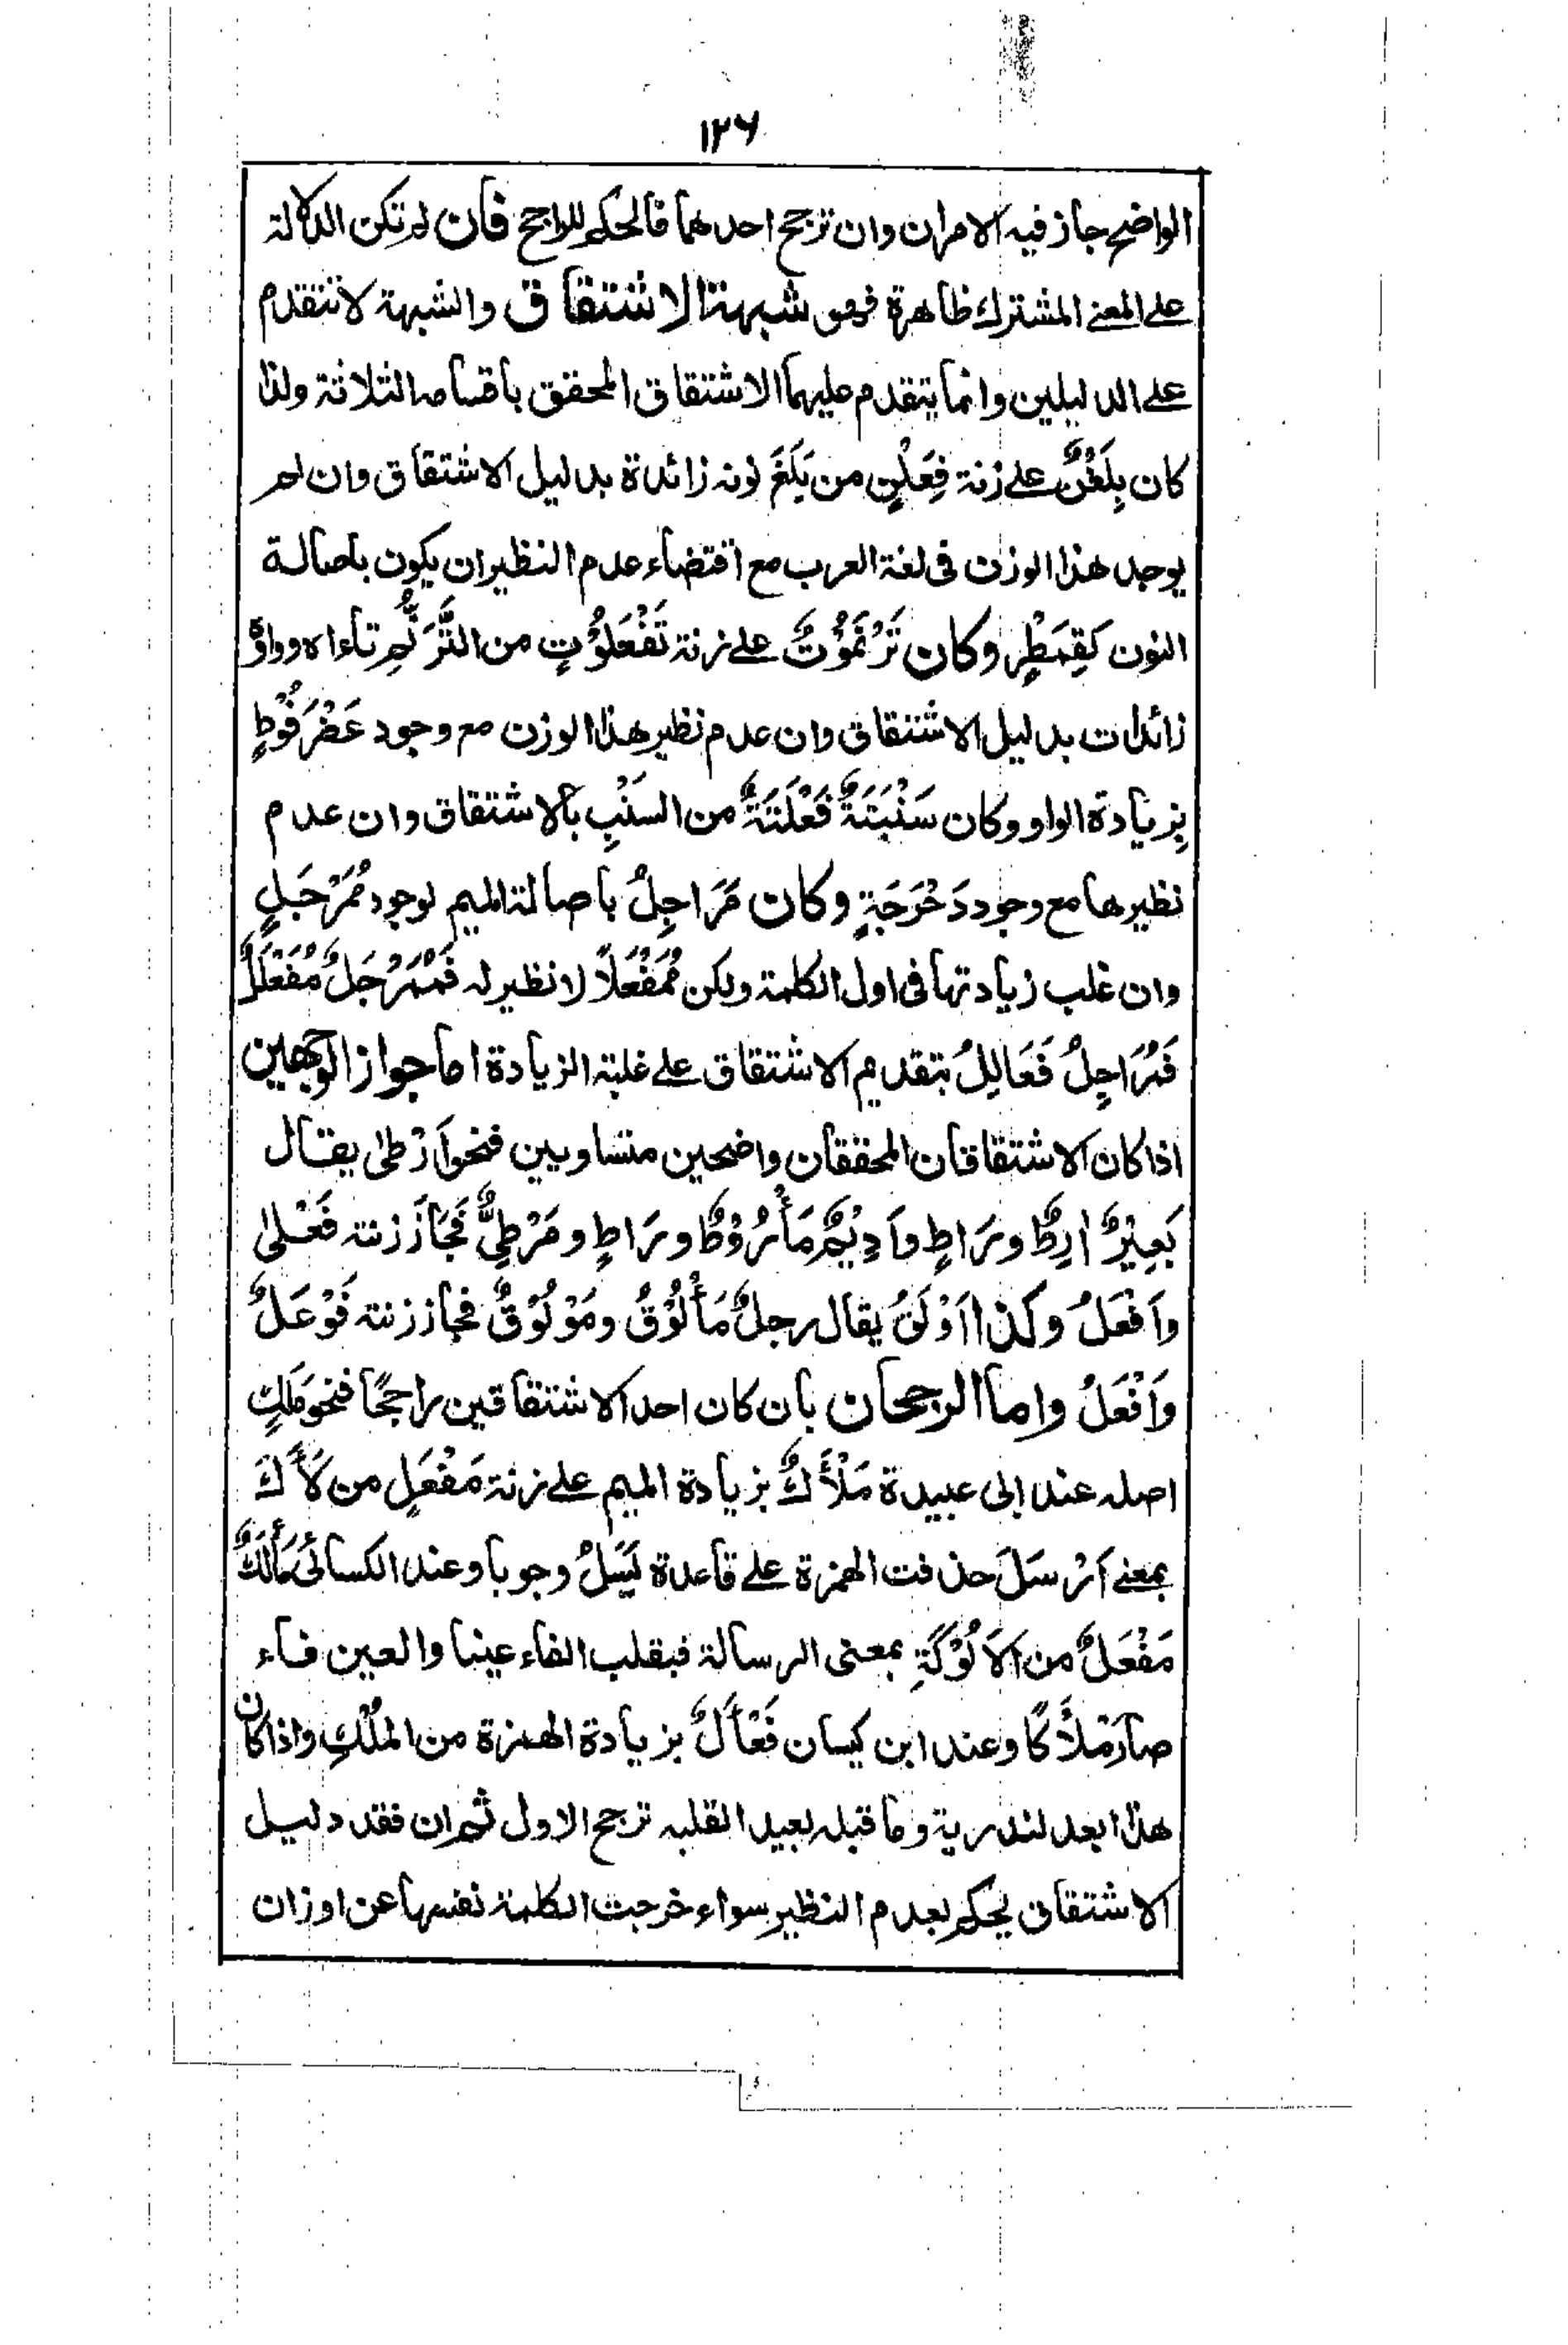 ۱۲۶
الواضح جاز فيه الامران وان ترجح احدهما فالحكم للراجح فان لم تكن الدلالة
على المعنى المشترك ظاهرة فهو شبهة الاشتقاق والشبهة لا تتقدم
على الدليلين وانما يتقدم عليهما الاشتقاق المحقق باقسامه الثلاثة ولذا
كان بِلَغْنٌ على زنة فِعَلْنٍ من بَلَغَ نونه زائدة بدليل الاشتقاق وان لم
يوجد هذا الوزن فى لغة العرب مع اقتضاء عدم النظير ان يكون باصالة
النون كَقِمَطْرٍ وكان تَرْنَمُوْتٌ على زنة تَفْعَلُوْتٍ من التَّرَنُّمِ تاءاه وواوُه
زائدات بدليل الاشتقاق وان عدم نظير هذا الوزن مع وجود عَضْرَفُوْطٍ
بِزيادة الواو وكان سَنْبَتَةٌ فَعْلَتَةٌ من السَنْبِ بالاشتقاق وان عدم
نظيرها مع وجود دَحْرَجَةٍ وكان مَرَاجِلُ باصالة الميم لوجود مُمَرْجَلٍ
وان غلب زيادتها فى اول الكلمة ولكن مُمَفْعَلًا لا نظير له فَمُمَرْجَلٌ مُفَعْلَلٌ
فَمَرَاجِلُ فَعَالِلُ بتقديم الاشتقاق على غلبة الزيادة اما جواز الوجهين
اذا كان الاشتقاقان المحققان واضحين متساويين فنحو اَرْطٰى يقال
بَعِيْرٌ اٰرِطٌ ورَاطٍ واَدِيْمٌ مَأْرُوْطٌ ورَاطٍ ومَرْطِىٌّ فَجَازَ زنته فَعْلىٰ
واَفْعَلُ وكذا اَوْلَقُ يقال رجلٌ مَأْلُوْقٌ ومَوْلُوْقٌ فجاز زنته فَوْعَلٌ
وَاَفْعَلُ واما الرجحان بان كان احد الاشتقاقين راجحًا فنحو مَلَكٍ
اصله عند ابى عبيدة مَلْأَكٌ بزيادة الميم على زنة مَفْعَلٍ من لَأَكَ
بمعنى اَرْسَلَ حذفت الهمزة على قاعدة يَسَلُ وجوبا وعند الكسائى مَأْلَكٌ
مَفْعَلٌ من الاَلُوْكَةِ بمعنى الرسالة فبقلب الفاء عينا والعين فاء
صار مَلْأَكًا وعند ابن كيسان فَعْأَلٌ بزيادة الهمزة من المُلْكِ واذا كان
هذا ابعد لندرية وما قبله بعيد القلبه ترجح الاول ثم ان فقد دليل
الاشتقاق يحكم بعدم النظير سواء خرجت الكلمة نفسها عن اوزان